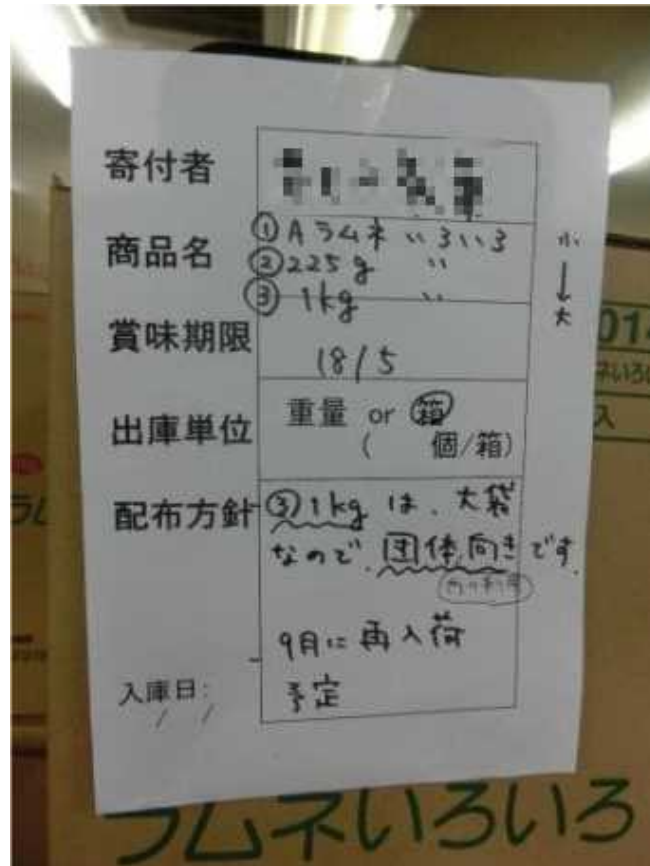 寄付者
商品名
①Aラムネ いろいろ
②225g 〃
③1kg 〃
小
↓
大
賞味期限
18/5
出庫単位
重量 or 箱
( 個/箱)
配布方針
③1kgは、大袋
なので、団体向きです。
9月に再入荷
予定
入庫日:
/ /
014
入
ラムネいろいろ